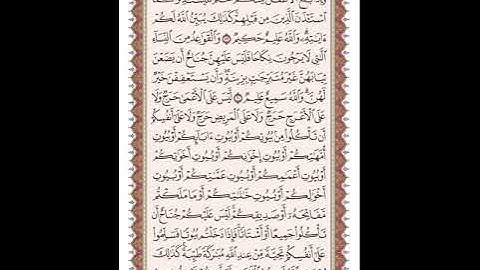 اسْتَأْذَنَ الَّذِينَ مِن قَبْلِهِمْ كَذَٰلِكَ يُبَيِّنُ اللَّهُ لَكُمْ
ءَايَاتِهِ وَاللَّهُ عَلِيمٌ حَكِيمٌ ۝ وَالْقَوَاعِدُ مِنَ النِّسَاءِ
الَّتِي لَا يَرْجُونَ نِكَاحًا فَلَيْسَ عَلَيْهِنَّ جُنَاحٌ أَن يَضَعْنَ
ثِيَابَهُنَّ غَيْرَ مُتَبَرِّجَاتٍ بِزِينَةٍ وَأَن يَسْتَعْفِفْنَ خَيْرٌ
لَّهُنَّ وَاللَّهُ سَمِيعٌ عَلِيمٌ ۝ لَّيْسَ عَلَى الْأَعْمَىٰ حَرَجٌ وَلَا
عَلَى الْأَعْرَجِ حَرَجٌ وَلَا عَلَى الْمَرِيضِ حَرَجٌ وَلَا عَلَىٰ أَنفُسِكُمْ
أَن تَأْكُلُوا مِن بُيُوتِكُمْ أَوْ بُيُوتِ ءَابَائِكُمْ أَوْ بُيُوتِ
أُمَّهَاتِكُمْ أَوْ بُيُوتِ إِخْوَانِكُمْ أَوْ بُيُوتِ أَخَوَاتِكُمْ
أَوْ بُيُوتِ أَعْمَامِكُمْ أَوْ بُيُوتِ عَمَّاتِكُمْ أَوْ بُيُوتِ
أَخْوَالِكُمْ أَوْ بُيُوتِ خَالَاتِكُمْ أَوْ مَا مَلَكْتُم
مَّفَاتِحَهُ أَوْ صَدِيقِكُمْ لَيْسَ عَلَيْكُمْ جُنَاحٌ أَن
تَأْكُلُوا جَمِيعًا أَوْ أَشْتَاتًا فَإِذَا دَخَلْتُم بُيُوتًا فَسَلِّمُوا
عَلَىٰ أَنفُسِكُمْ تَحِيَّةً مِّنْ عِندِ اللَّهِ مُبَارَكَةً طَيِّبَةً كَذَٰلِكَ